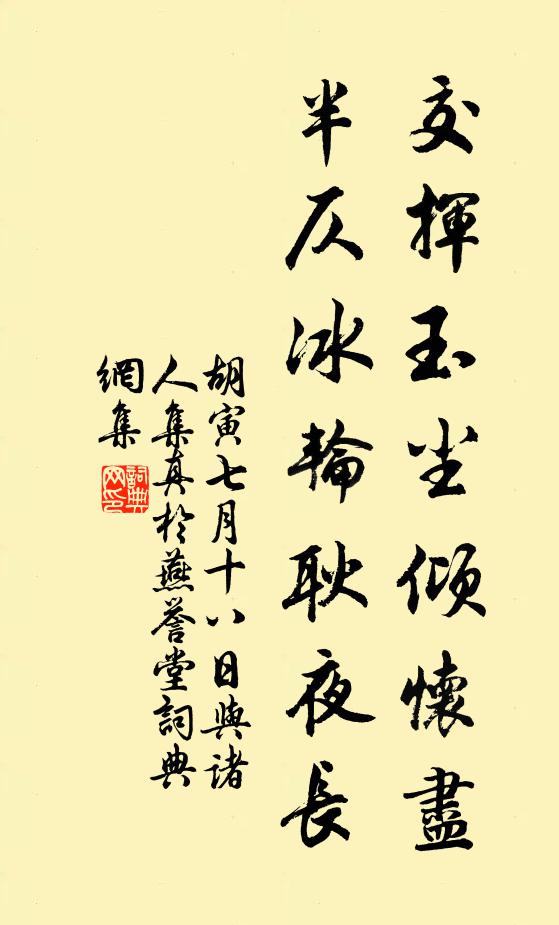 交揮玉尘傾懷盡
半仄冰輪耿夜長
胡寅七月十八日與諸
人集真於燕譽堂詞典
網集
詞典網印